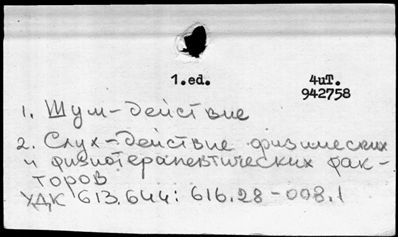 1.ed. 4иТ.
942758
1. Шум-действие
2. Слух-действие физических
и физиотерапевтических фак-
торов
УДК 613.644: 616.28-008.1